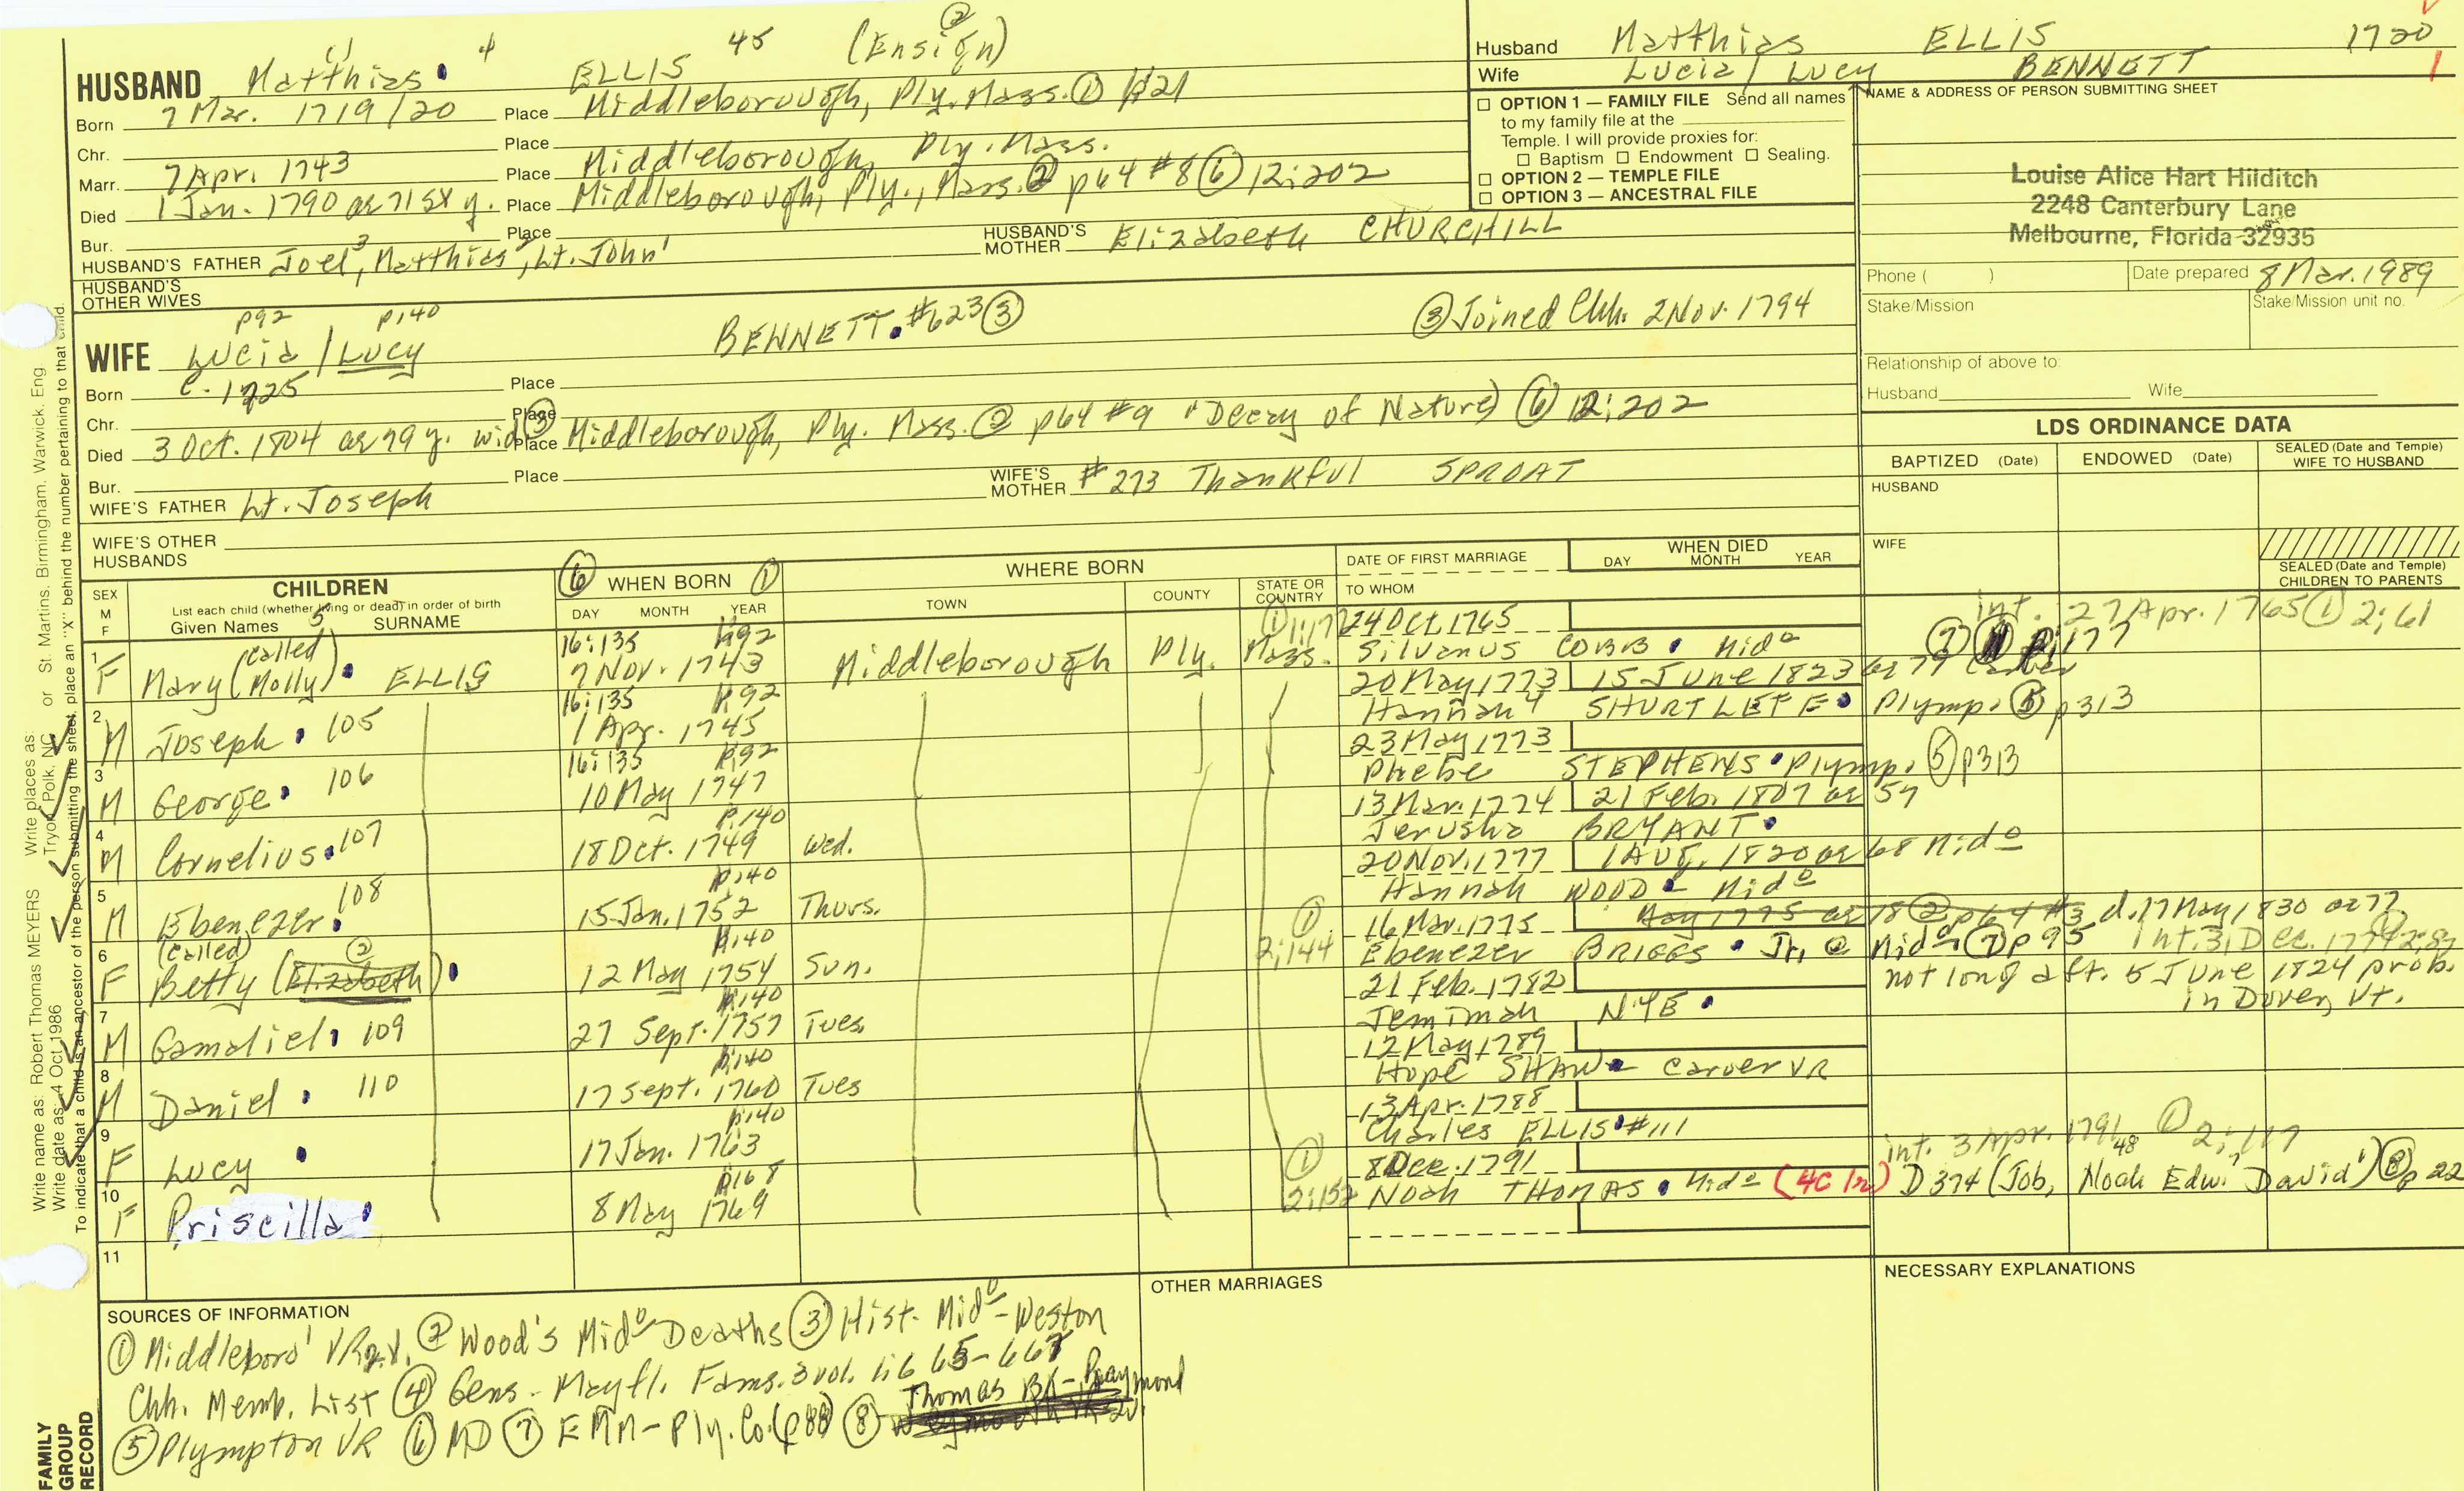 HUSBAND Matthias 4 ELLIS 45 (Ensign) ②
Born 7 Mar. 1719/20 Place Middleborough, Ply. Mass. ① 1:21
Chr. Place
Marr. 7 Apr. 1743 Place Middleborough, Ply. Mass.
Died 1 Jan. 1790 ae 71 sx y. Place Middleborough, Ply., Mass. ② p64 #8 ⑥ 12:202
Bur. Place
HUSBAND'S FATHER Joel³, Matthias², Lt. John¹ HUSBAND'S MOTHER Elizabeth CHURCHILL
HUSBAND'S OTHER WIVES
p92 p140
WIFE Lucia / Lucy BENNETT. #623 ③ ③ Joined Chh. 2 Nov. 1794
Born c. 1725 Place
Chr. Place
Died 3 Oct. 1804 ae 79 y. wid ③ Place Middleborough, Ply. Mass. ② p64 #9 "Decay of Nature) ⑥ 12:202
Bur. Place
WIFE'S FATHER Lt. Joseph WIFE'S MOTHER #273 Thankful SPROAT
WIFE'S OTHER HUSBANDS
Husband Matthias ELLIS 1720
Wife Lucia / Lucy BENNETT 1
OPTION 1 — FAMILY FILE Send all names
to my family file at the
Temple. I will provide proxies for:
Baptism Endowment Sealing.
OPTION 2 — TEMPLE FILE
OPTION 3 — ANCESTRAL FILE
NAME & ADDRESS OF PERSON SUBMITTING SHEET
Louise Alice Hart Hilditch
2248 Canterbury Lane
Melbourne, Florida 32935
Phone ( ) Date prepared 8 Mar. 1989
Stake/Mission Stake/Mission unit no.
Relationship of above to:
Husband Wife
LDS ORDINANCE DATA
BAPTIZED (Date) ENDOWED (Date) SEALED (Date and Temple) WIFE TO HUSBAND
HUSBAND
WIFE
SEALED (Date and Temple) CHILDREN TO PARENTS
SEX M F
CHILDREN
List each child (whether living or dead) in order of birth
Given Names 5 SURNAME
⑥ WHEN BORN ①
DAY MONTH YEAR
WHERE BORN
TOWN COUNTY STATE OR COUNTRY
DATE OF FIRST MARRIAGE
TO WHOM
WHEN DIED
DAY MONTH YEAR
16:135 p.92 ① 1:17 24 Oct. 1765 int. 27 Apr. 1765 ① 2:61
1 F Mary (called Molly). ELLIS 7 Nov. 1743 Middleborough Ply. Mass. Silvanus COBB. Mid° ⑦ p.177
16:135 p.92 20 May 1773 15 June 1823 ae 79 Carver
2 M Joseph. 105 1 Apr. 1745 Hannah 4 SHURTLEFF. Plymp. ⑤ p313
16:135 p.92 23 May 1773
3 M George. 106 10 May 1747 Phebe STEPHENS. Plymp. ⑤ p313
p.140 13 Mar. 1774 21 Feb. 1807 ae 57
4 M Cornelius. 107 18 Oct. 1749 Wed. Jerusha BRYANT.
p.140 20 Nov. 1777 1 Aug. 1820 ae 68 Mid°
5 M Ebenezer. 108 15 Jan. 1752 Thurs. Hannah WOOD Mid°
p.140 ① 16 Mar. 1775 May 1775 ae 18 ② p64 #3 d. 17 May 1830 ae 77
6 F (called) Betty (Elizabeth) ②. 12 May 1754 Sun. 2:144 Ebenezer BRIGGS. Jr. @ Mid° ⑦ p95 Int. 31 Dec. 1774
p.140 21 Feb. 1782 not long aft. 5 June 1824 prob.
7 M Gamaliel. 109 27 Sept. 1757 Tues. Jemimah NYE. in Dover, Vt.
p.140 12 May 1789
8 M Daniel. 110 17 Sept. 1760 Tues Hope SHAW Carver VR
p.140 13 Apr. 1788
9 F Lucy. 17 Jan. 1763 Charles ELLIS. #111
p168 ① 8 Dec. 1791 int. 3 Apr. 1791 ① 2:117
10 F Priscilla. 8 May 1769 2:152 Noah THOMAS. Mid° (4C 1r) D 374 (Job, Noah Edw. David¹) ⑧ p 22
11
SOURCES OF INFORMATION
① Middleboro' VR 2 v. ② Wood's Mid° Deaths ③ Hist. Mid° - Weston
Chh. Memb. List ④ Gens - Mayfl. Fams. 3 vol. 1:665-667
⑤ Plympton VR ⑥ MD ⑦ EMM - Ply. Co. (p88) ⑧ Thomas BK - Raymond
OTHER MARRIAGES
NECESSARY EXPLANATIONS
Write name as: Robert Thomas MEYERS Write places as: Tryon, Polk, NC or St. Martins, Birmingham, Warwick, Eng
Write date as: 4 Oct 1986
To indicate that a child is an ancestor of the person submitting the sheet, place an "X" behind the number pertaining to that child.
FAMILY GROUP RECORD